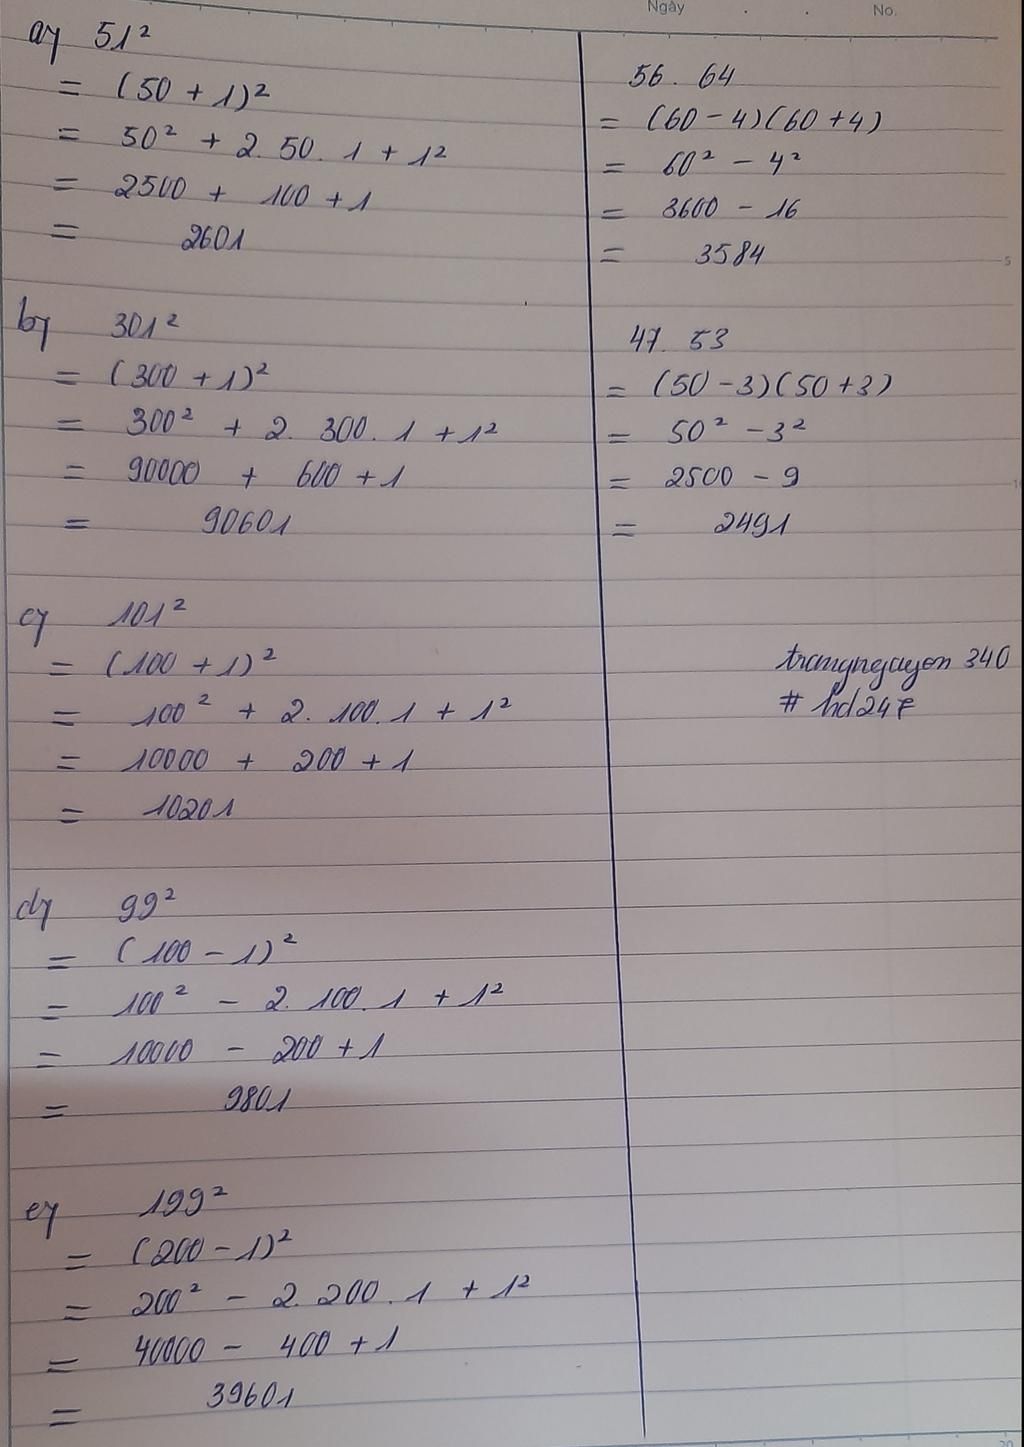 Ngày . . No.
a) 51²
= (50 + 1)²
= 50² + 2. 50. 1 + 1²
= 2500 + 100 + 1
= 2601
b) 301²
= (300 + 1)²
= 300² + 2. 300. 1 + 1²
= 90000 + 600 + 1
= 90601
c) 101²
= (100 + 1)²
= 100² + 2. 100. 1 + 1²
= 10000 + 200 + 1
= 10201
d) 99²
= (100 - 1)²
= 100² - 2. 100. 1 + 1²
= 10000 - 200 + 1
= 9801
e) 199²
= (200 - 1)²
= 200² - 2. 200. 1 + 1²
= 40000 - 400 + 1
= 39601
56. 64
= (60 - 4)(60 + 4)
= 60² - 4²
= 3600 - 16
= 3584
5
47. 53
= (50 - 3)(50 + 3)
= 50² - 3²
= 2500 - 9
= 2491
340
# hd247